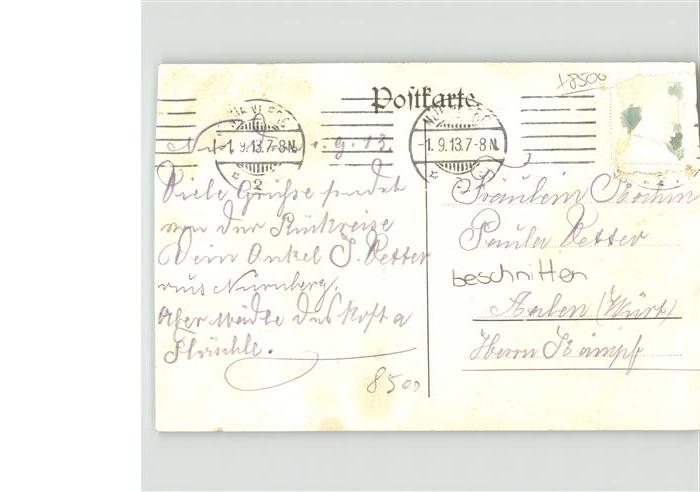 Postkarte
+8500
-1.9.13.7-8N.
-1.9.13.7-8N.
2
1.9.13.
Viele Grüße sendet
von der Rückreise
Dein Onkel J. Vetter
aus Nürnberg.
Aber Mädle des kost a
Fläschle.
8500
Fräulein
Paula Vetter
beschnitten
Aalen (Württ)
Herrn Kämpf